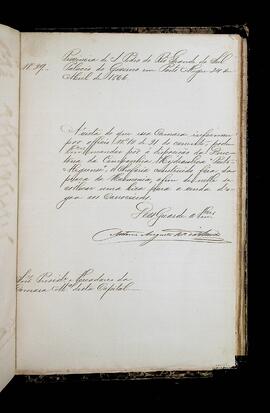 Provincia de S. Pedro do Rio Grande do Sul
Palacio do Governo em Porto Alegre 24 de
Abril de 1866.
N. 39.
Á vista do que essa Camara informou
por officio n. 10 de 21 do corrente, podem
V.mces mandar pôr á disposição da Direc
toria da Companhia Hydraulica Porto
Alegrense, o chafariz construido fóra da
praça da
afim de nelle se
collocar uma bica para a venda d'a
goa aos Carroceiros.
Deos Guarde a V.mces
Antonio Augusto
Snrs. Presid.e e Vereadores da
Camara M.al desta Capital.